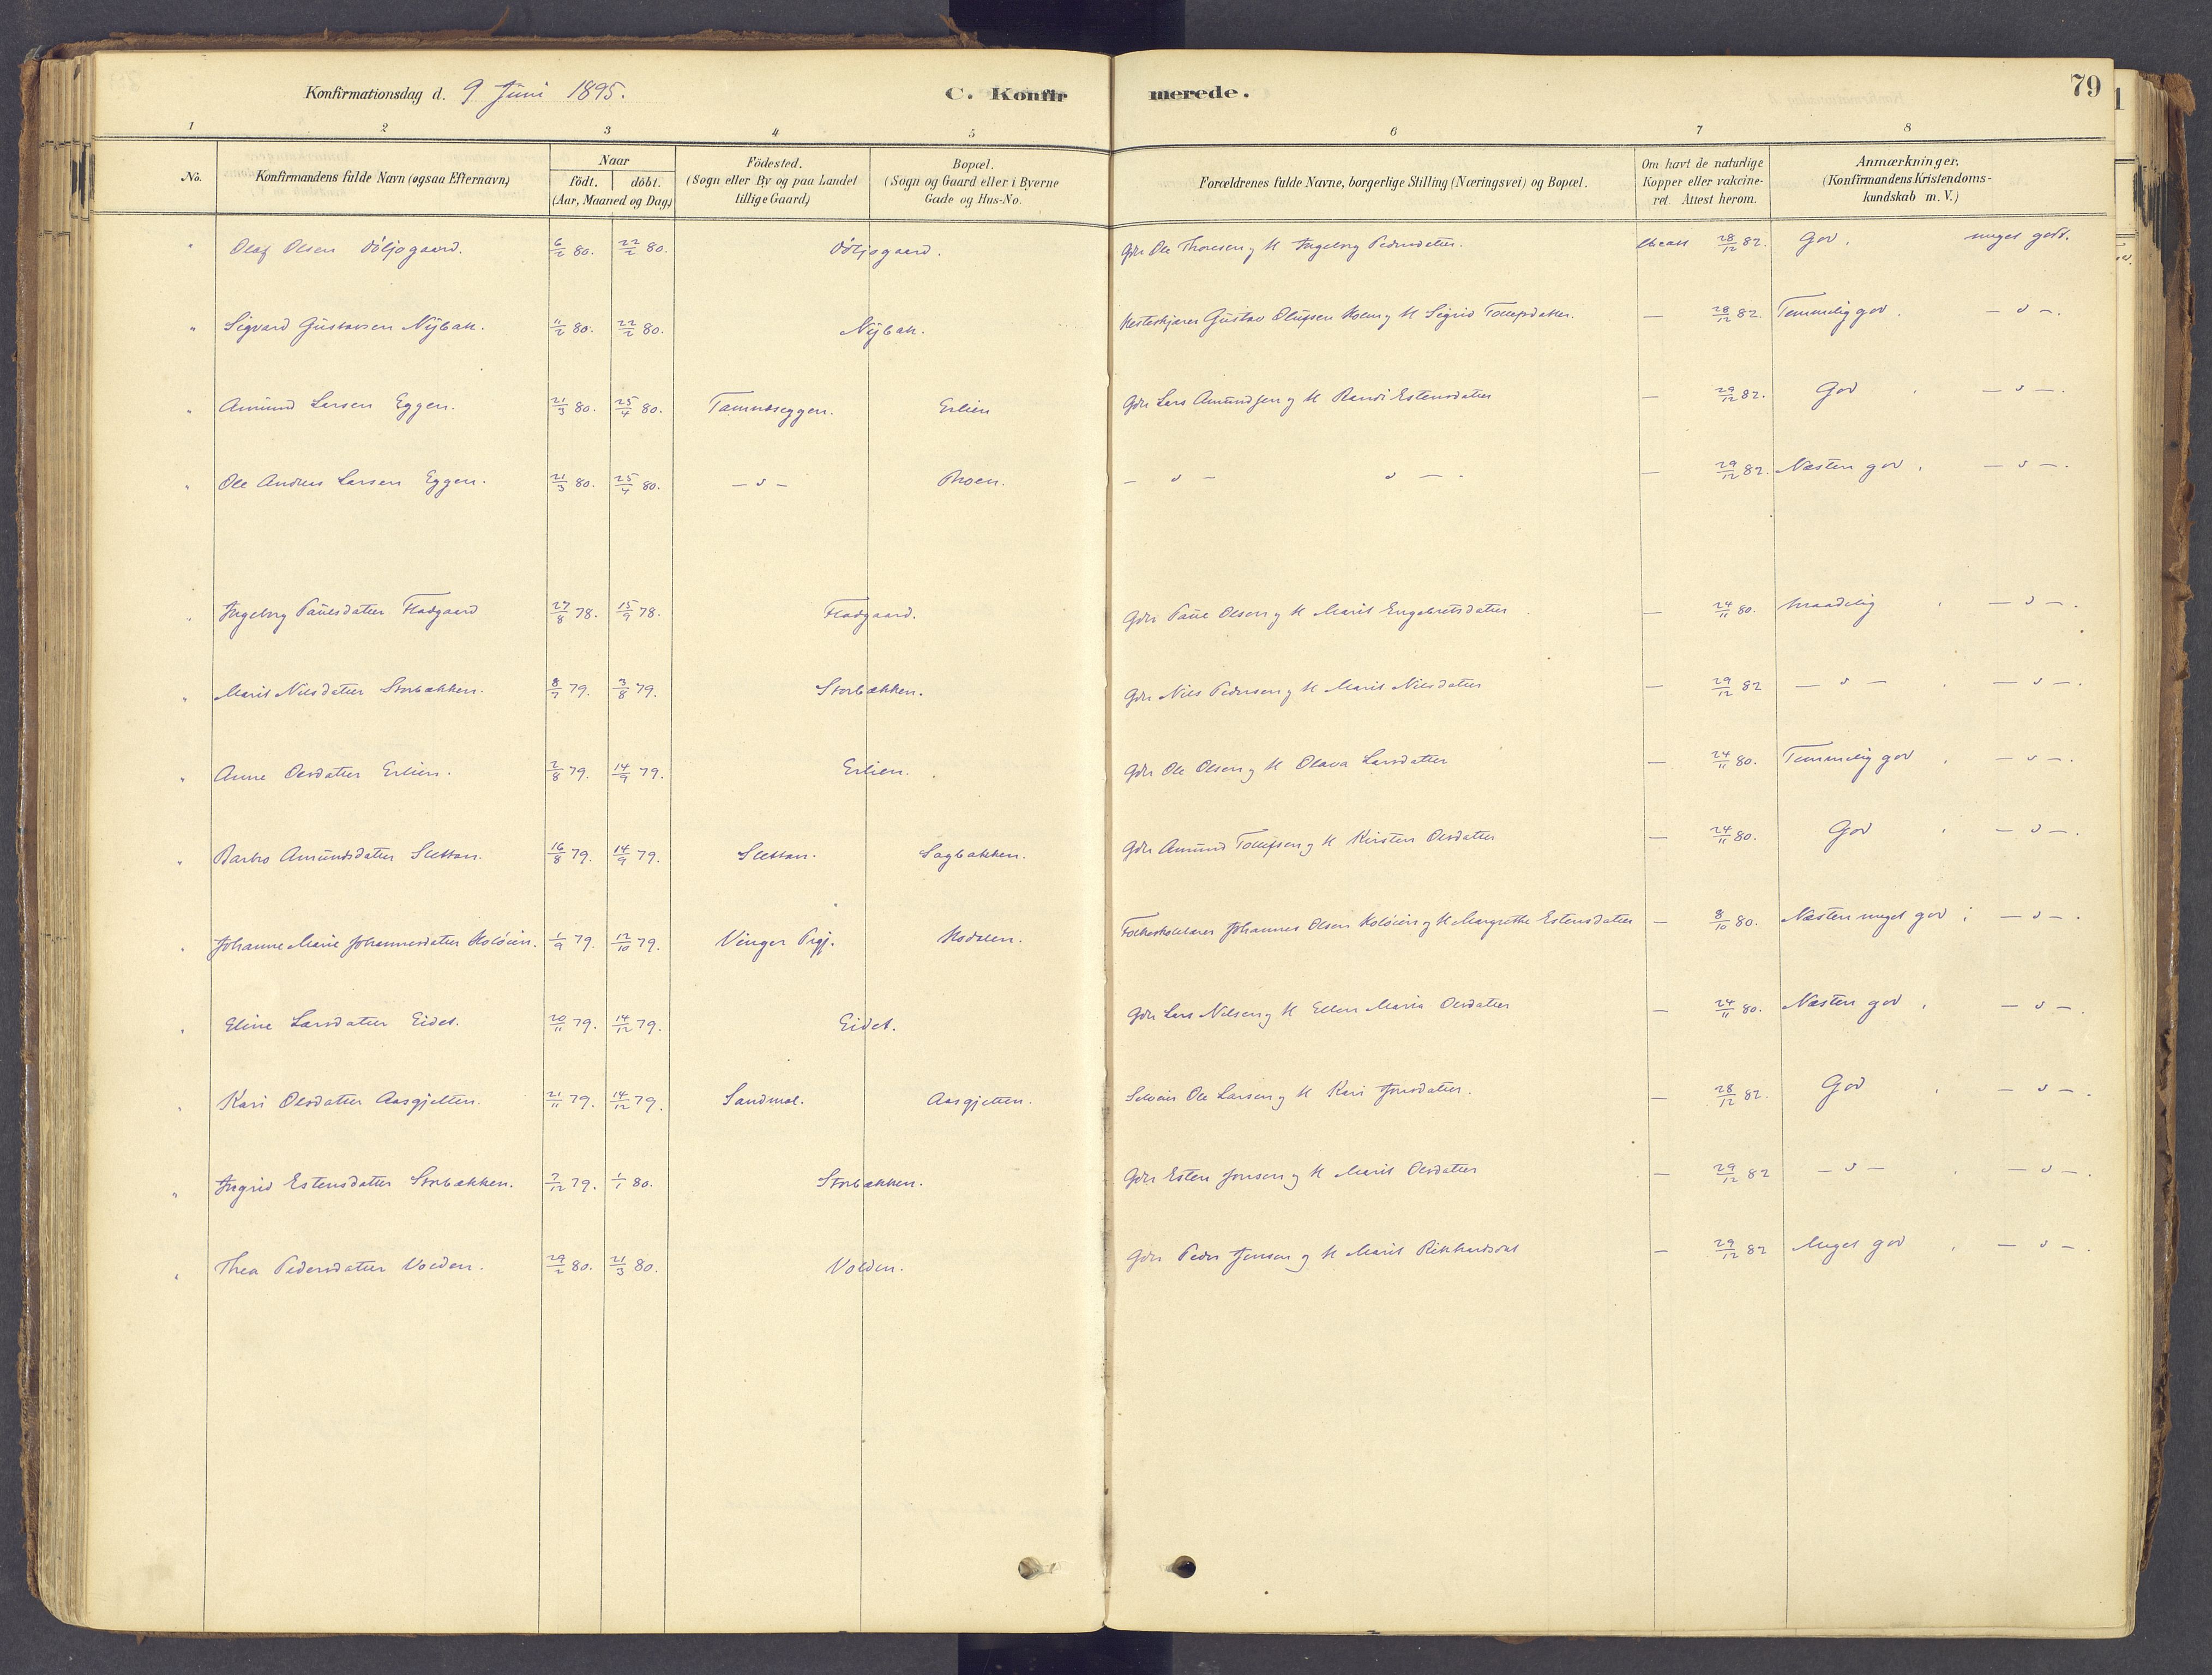 Konfirmationsdag d. 9 Juni 1895. C. Konfirmerede. 79
1 2 3 4 5 6 7 8
No. Konfirmandens fulde Navn (ogsaa Efternavn) Naar født. døbt. (Aar, Maaned og Dag) Födested. (Sogn eller By og paa Landet tillige Gaard) Bopæl. (Sogn og Gaard eller i Byerne Gade og Hus-No. Forældrenes fulde Navne, borgerlige Stilling (Næringsvei) og Bopæl. Om havt de naturlige Kopper eller vakcineret. Attest herom. Anmærkninger, (Konfirmandens Kristendomskundskab m. V.)
" Olaf Olsen 6/2 80. 22/2 80. Gdr Ole Thoresen og H Ingeborg Pedersdatter. 28/12 82. God. meget godt.
" Sigvard Gustavsen Nÿbak. 11/2 80. 22/2 80. Nÿbak. Gustav Olufsen og H Sigrid Tollefsdatter. — 28/12 82. Temmelig god. — " —.
" Amund Larsen Eggen. 21/3 80. 25/4 80. Tamnæseggen. Erlien Gdr Lars Amundsen og H Randi Estensdatter — 29/12 82. God — " —.
" Ole Andreas Larsen Eggen. 21/3 80. 25/4 80. — " — Moen. — " — " — . — 29/12 82. Næsten god. — " —.
" Ingeborg Paulsdatter Fladgaard 27/8 78. 15/9 78. Fladgaard. Gdr Paul Olsen og H Marit Engebretsdatter — 24/11 80. Maadelig — " —.
" Marit Nilsdatter Storbækken. 8/7 79. 3/8 79. Storbækken. Gdr Nils Pedersen og H Marit Nilsdatter — 29/12 82 — " — . — " —.
" Anne Olsdatter Erlien. 2/8 79. 14/9 79. Erlien. Gdr Ole Olsen og H Olava Larsdatter — 24/11 80. Temmelig god . — " —.
" Barbro Amundsdatter Slettan. 16/8 79. 14/9 79. Slettan. Sagbakken. Gdr Amund Tollefsen og H Kirsten Olsdatter — 24/11 80. God . — " —.
" Johanne Marie Johannesdatter Koløien. 1/9 79. 12/10 79. Vinger Prgj. Hodalen. Folkeskolelærer Johannes Olsen Koløien og H Margrethe Estensdatter — 8/10 80. Næsten meget god . — " —.
" Eline Larsdatter Eidet. 20/11 79. 14/12 79. Eidet. Gdr Lars Nilsen og H Ellen Maria Olsdatter — 24/11 80. Næsten god . — " —.
" Kari Olsdatter Aasgjelten. 21/11 79. 14/12 79. Sandmæl. Aasgjelten. Selveier Ole Larsen og H Kari Jonsdatter. — 28/12 82. God . — " —.
" Ingrid Estensdatter Storbækken. 7/12 79. 1/1 80. Storbækken. Gdr Esten Jonsen og H Marit Olsdatter — 29/12 82 — " — . — " —.
" Thea Pedersdatter Volden. 29/2 80. 21/3 80. Volden. Gdr Peder Jensen og H Marit — 29/12 82 Meget god . — " —.